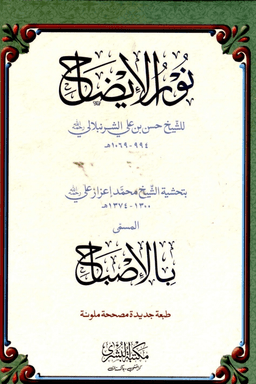 نور الإيضاح
للشيخ حسن بن علي الشرنبلالي رحمه الله
٩٩٤ - ١٠٦٩هـ
بتحشية الشيخ محمد إعزاز علي رحمه الله
١٣٠٠ - ١٣٧٤هـ
المسمى
بالإصباح
طبعة جديدة مصححة ملونة
مكتبة البشرى
كراتشي - باكستان